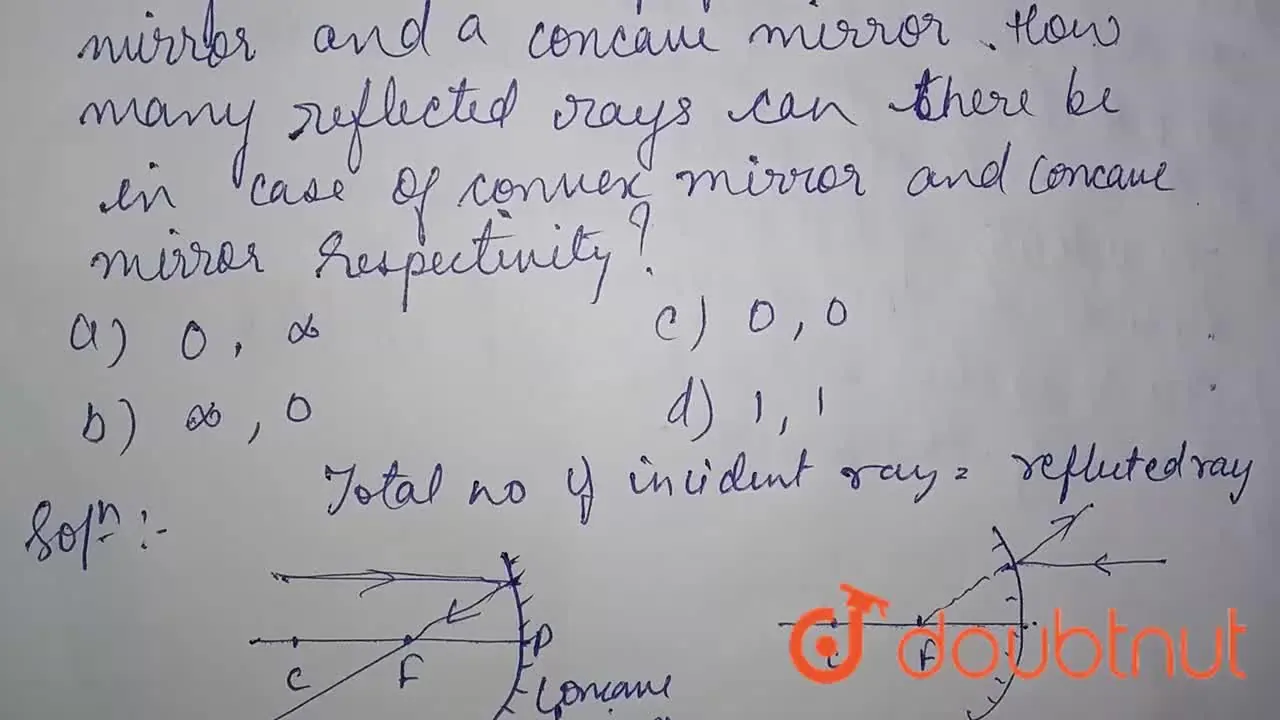 mirror and a concave mirror. How
many reflected rays can there be
in case of convex mirror and concave
mirror respectivity?
a) 0, ∞
c) 0, 0
b) ∞, 0
d) 1, 1
Total no of incident ray = reflected ray
Solⁿ :-
C
F
P
Concave
C
F
doubtnut